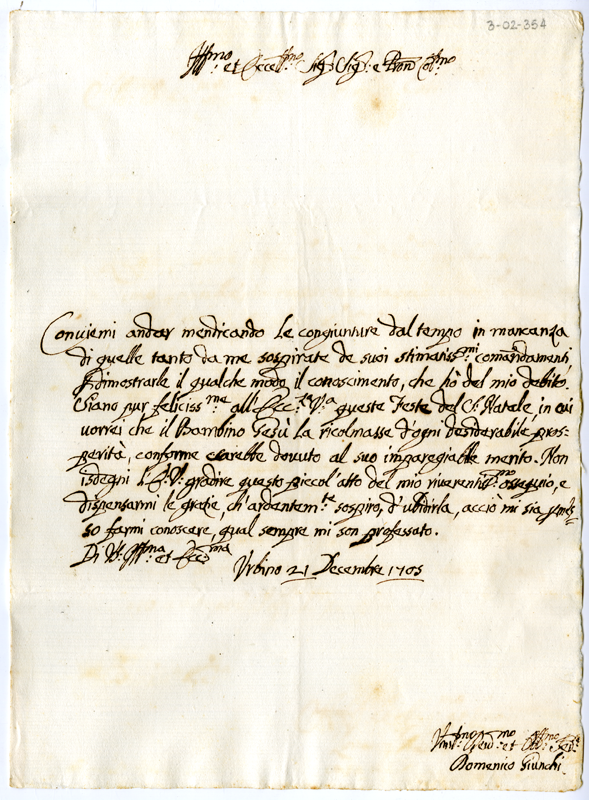 3-02-354
Ill.mo et Ecce.mo Sig.r Sig.r e Pron Col.mo
Conviemi andar mendicando le congiunture dal tempo in mancanza
di quelle tanto da me sospirate de suoi stimatiss.mi comandamenti
dimostrarle il qualche modo il conoscimento, che hò del mio debito.
Siano pur feliciss.me all'Ecc.za V.a queste Feste del S. Natale in cui
vorrei che il Bambino Gesù la ricolmasse d'ogni desiderabile pros-
perità, conforme sarebbe dovuto al suo impareggiabile merito. Non
isdegni l'E. V. gradire questo piccol'atto del mio riverentis.mo ossequio, e
dispensarmi le gratie, ch'ardentem.te sospiro, d'ubidirla, acciò mi sia
so farmi conoscere, qual sempre mi son professato.
Di V. Ill.ma et Ecc.ma
Urbino 21 Decembre 1705
Dev.mo et Obl.mo Ser.
Domenico Giunchi